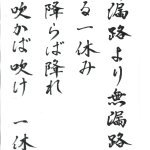 漏路より無漏路
る一休み
降らば降れ
吹かば吹け　一休